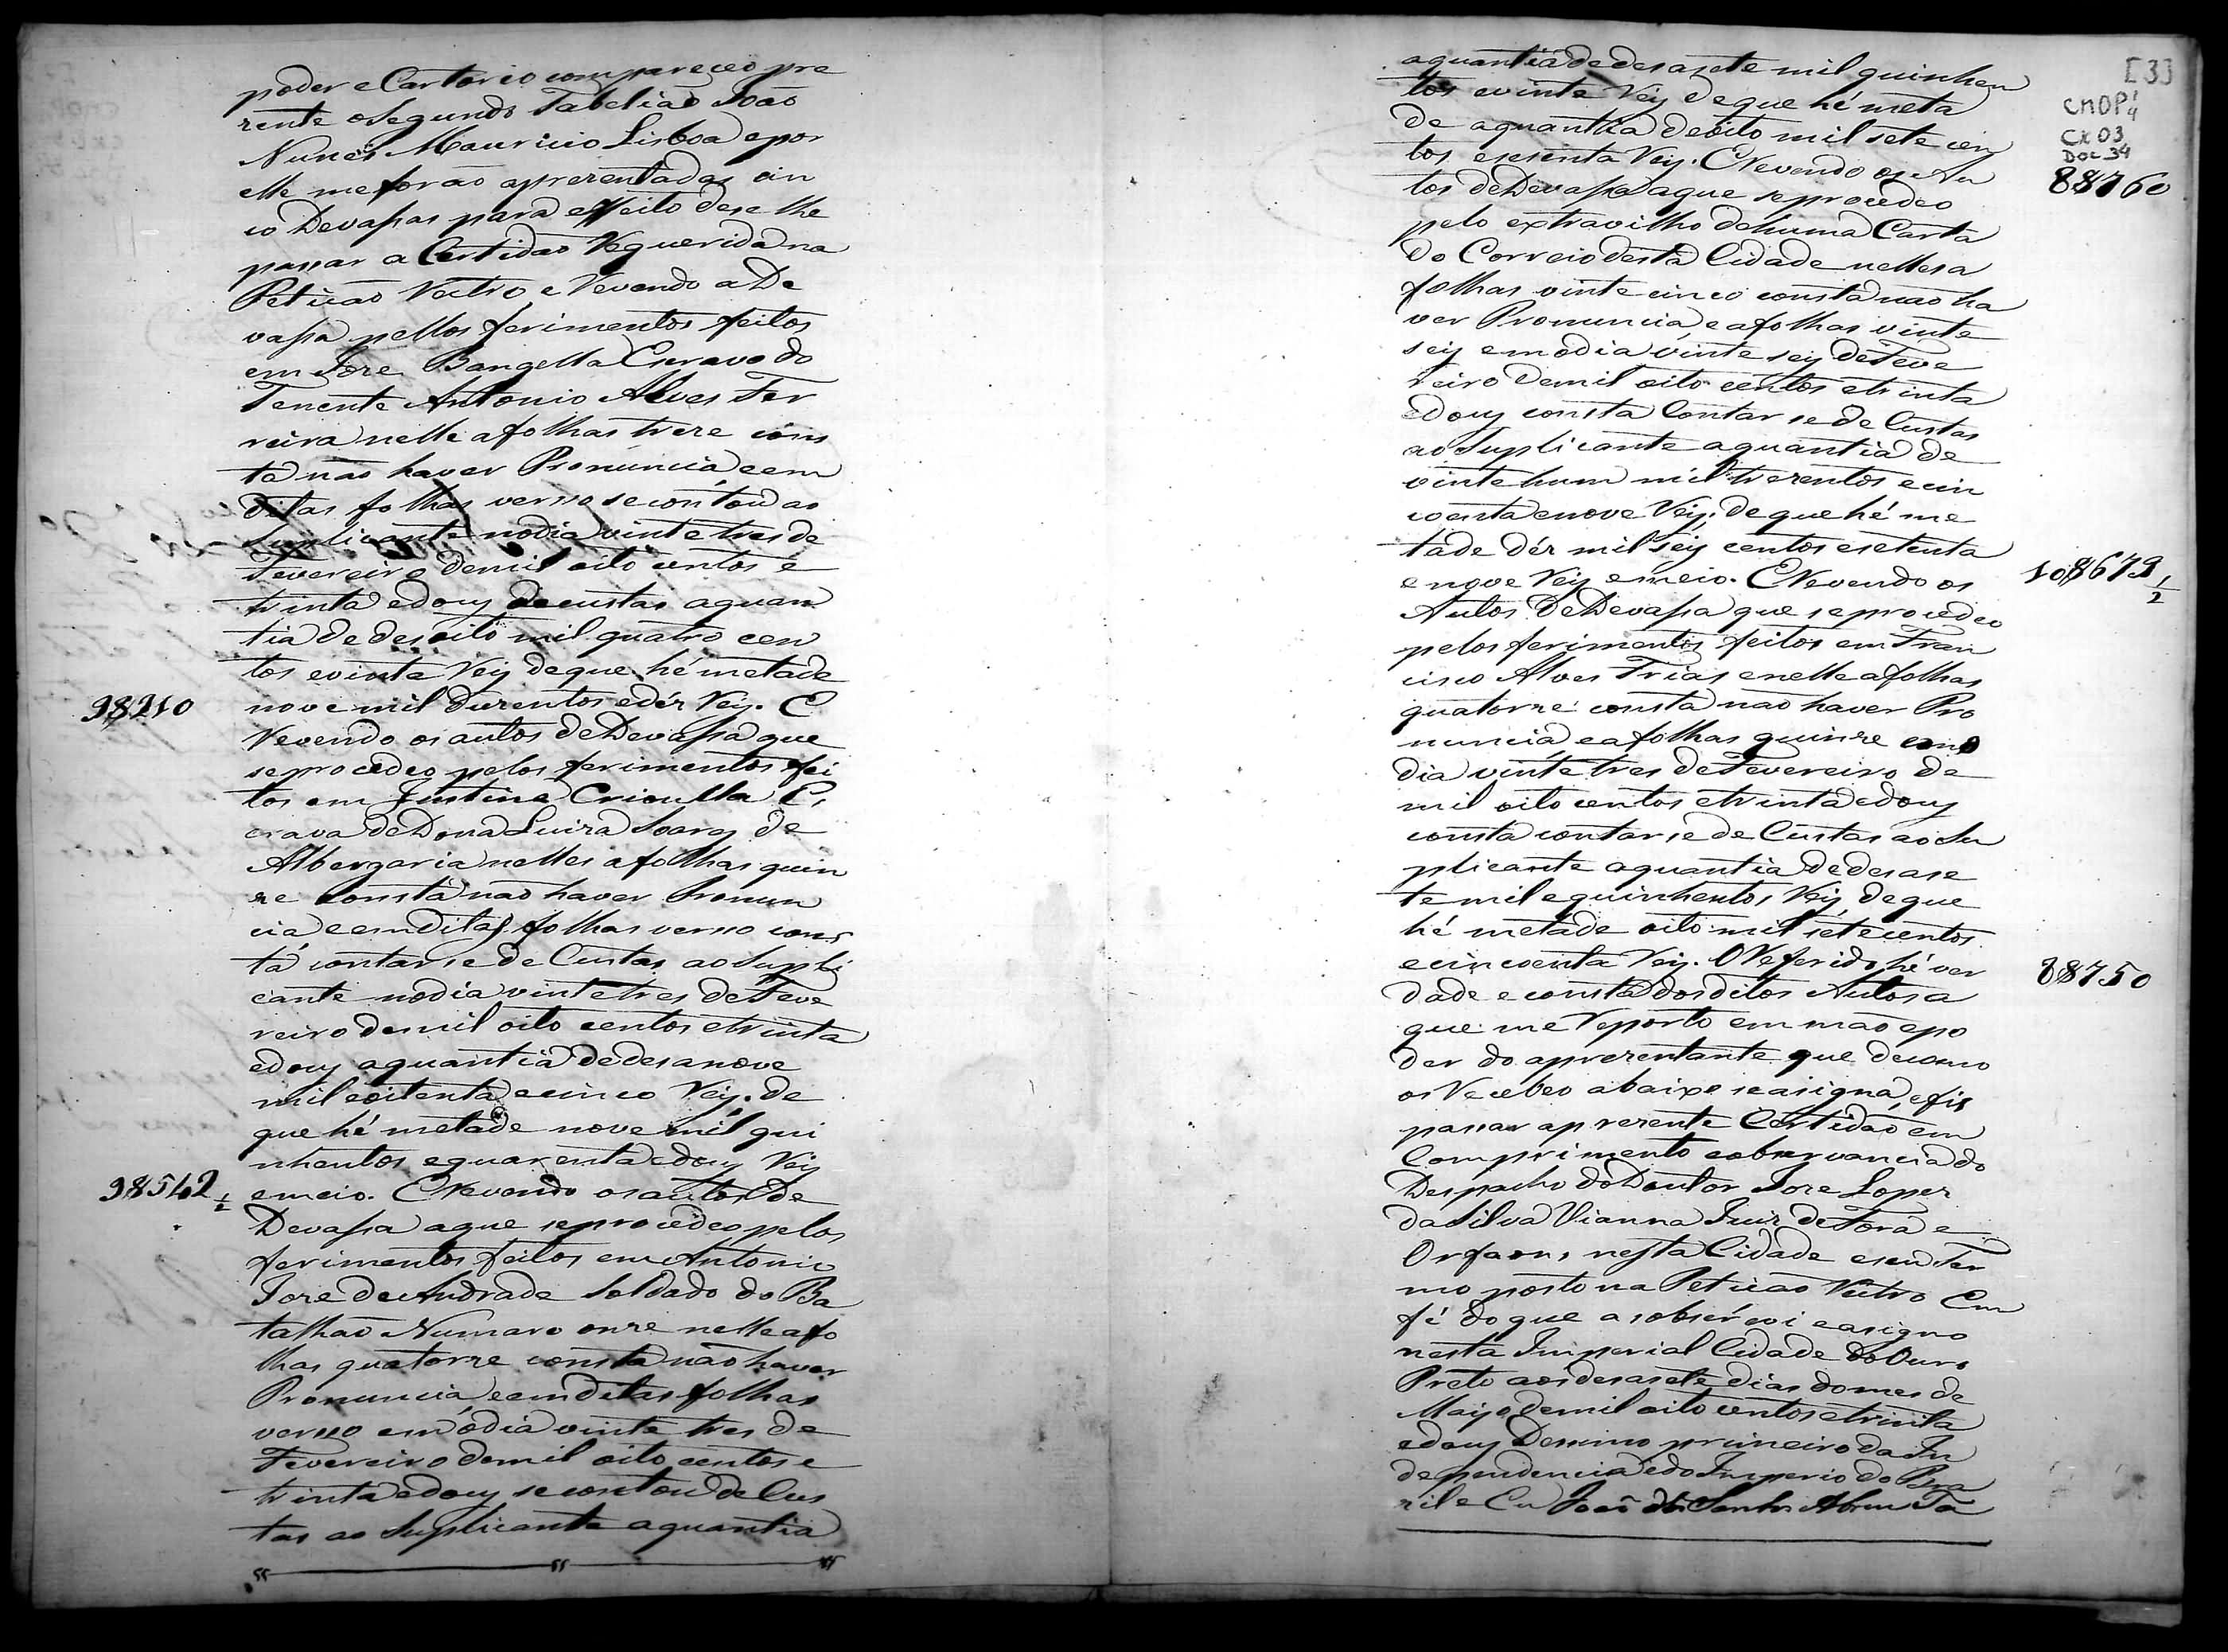 poder e Cartorio compareceo pre
zente o Segundo Tabeliaõ Joaõ
Nunes Mauricio Lisboa e por
elle me foraõ aprezentadas cin
co Devaças para effeito de se lhe
passar a Certidaõ Requerida na
Petiçaõ Retro e Revendo a De
vaça pellos ferimentos feitos
em Joze Bangella Escravo do
Tenente Antonio Alves Fer
reira nelle a folhas treze cons
ta naõ haver Pronuncia e em
ditas folhas verso se contou ao
Suplicante no dia vinte tres de
Fevereiro de mil oito centos e
trinta e dous de custas a quan
tia de desoito mil quatro cen
tos e vinte Reis de que hé metade
9$210
nove mil duzentos e déz Reis. E
Revendo os autos de Devaça que
se procedeo pelos ferimentos fei
tos em Justina Crioulla Es
crava de Dona Luiza Soares de
Albergaria nelles a folhas quin
ze consta naõ haver Pronun
cia e em ditas folhas verso cons
ta contarse de Custas ao Supli
cante no dia vinte tres de Feve
reiro de mil oito centos e trinta
e dous a quantia de desanove
mil e oitenta e cinco Reis. de
que hé metade nove mil qui
nhentos e quarenta e dous Reis
9$542 1/2
e meio. E Revendo os autos de
Devaça a que se procedeo pelos
ferimentos feitos em Antonio
Joze de Andrade Soldado do Ba
talhaõ Numaro onze nelle a fo
lhas quatorze consta naõ haver
Pronuncia e em ditas folhas
verso em o dia vinte tres de
Fevereiro de mil oito centos e
trinta e dous se contou de Cus
tas ao Suplicante a quantia
[3]
CMOP
CX 03
DOC 34
a quantia de desasete mil quinhen
tos e vinte Reis de que hé meta
de a quantia de oito mil sete cen
tos e sesenta Reis. E Revendo os Au
8$760
tos de Devaça a que se procedeo
pelo extravilho de huma Carta
do Correio desta Cidade nelles a
folhas vinte cinco consta naõ ha
ver Pronuncia, e a folhas vinte
seis em o dia vinte seis de Feve
reiro de mil oito centos e trinta
e dous consta Contar se de Custas
ao Suplicante a quantia de
vinte hum mil trezentos e cin
coenta e nove Reis, de que hé me
tade déz mil seis centos e setenta
e nove Reis e meio. E Revendo os
10$679 1/2
Autos de Devaça que se procedeo
pelos ferimentos feitos em Fran
cisco Alves Frias e nelle a folhas
quatorze consta naõ haver Pro
nuncia e a folhas quinze em o
dia vinte tres de Fevereiro de
mil oito centos e trinta e dous
consta contar se de Custas ao Su
plicante a quantia de desase
te mil e quinhentos Reis, de que
hé metade oito mil sete centos
e cincoenta Reis. O Referido hé ver
8$750
dade e consta dos ditos Autos a
que me Reporto em maõ e po
der do aprezentante que de como
os Recebeo abaixo se asigna, e fis
passar a prezente Certidaõ em
Comprimento e observancia do
Despacho do Doutor Joze Lopes
da Silva Vianna Juiz de Fora e
Orfaons nesta Cidade e seu Ter
mo posto na Petiçaõ Retro Em
fé do que a sobscrevi e asigno
nesta Imperial Cidade do Ouro
Preto aos desasete dias do mes de
Mayo de mil oito centos e trinta
e dous Desimo primeiro da In
dependencia e do Imperio do Bra
zil e Eu Joaõ dos Santos Abreu Ta